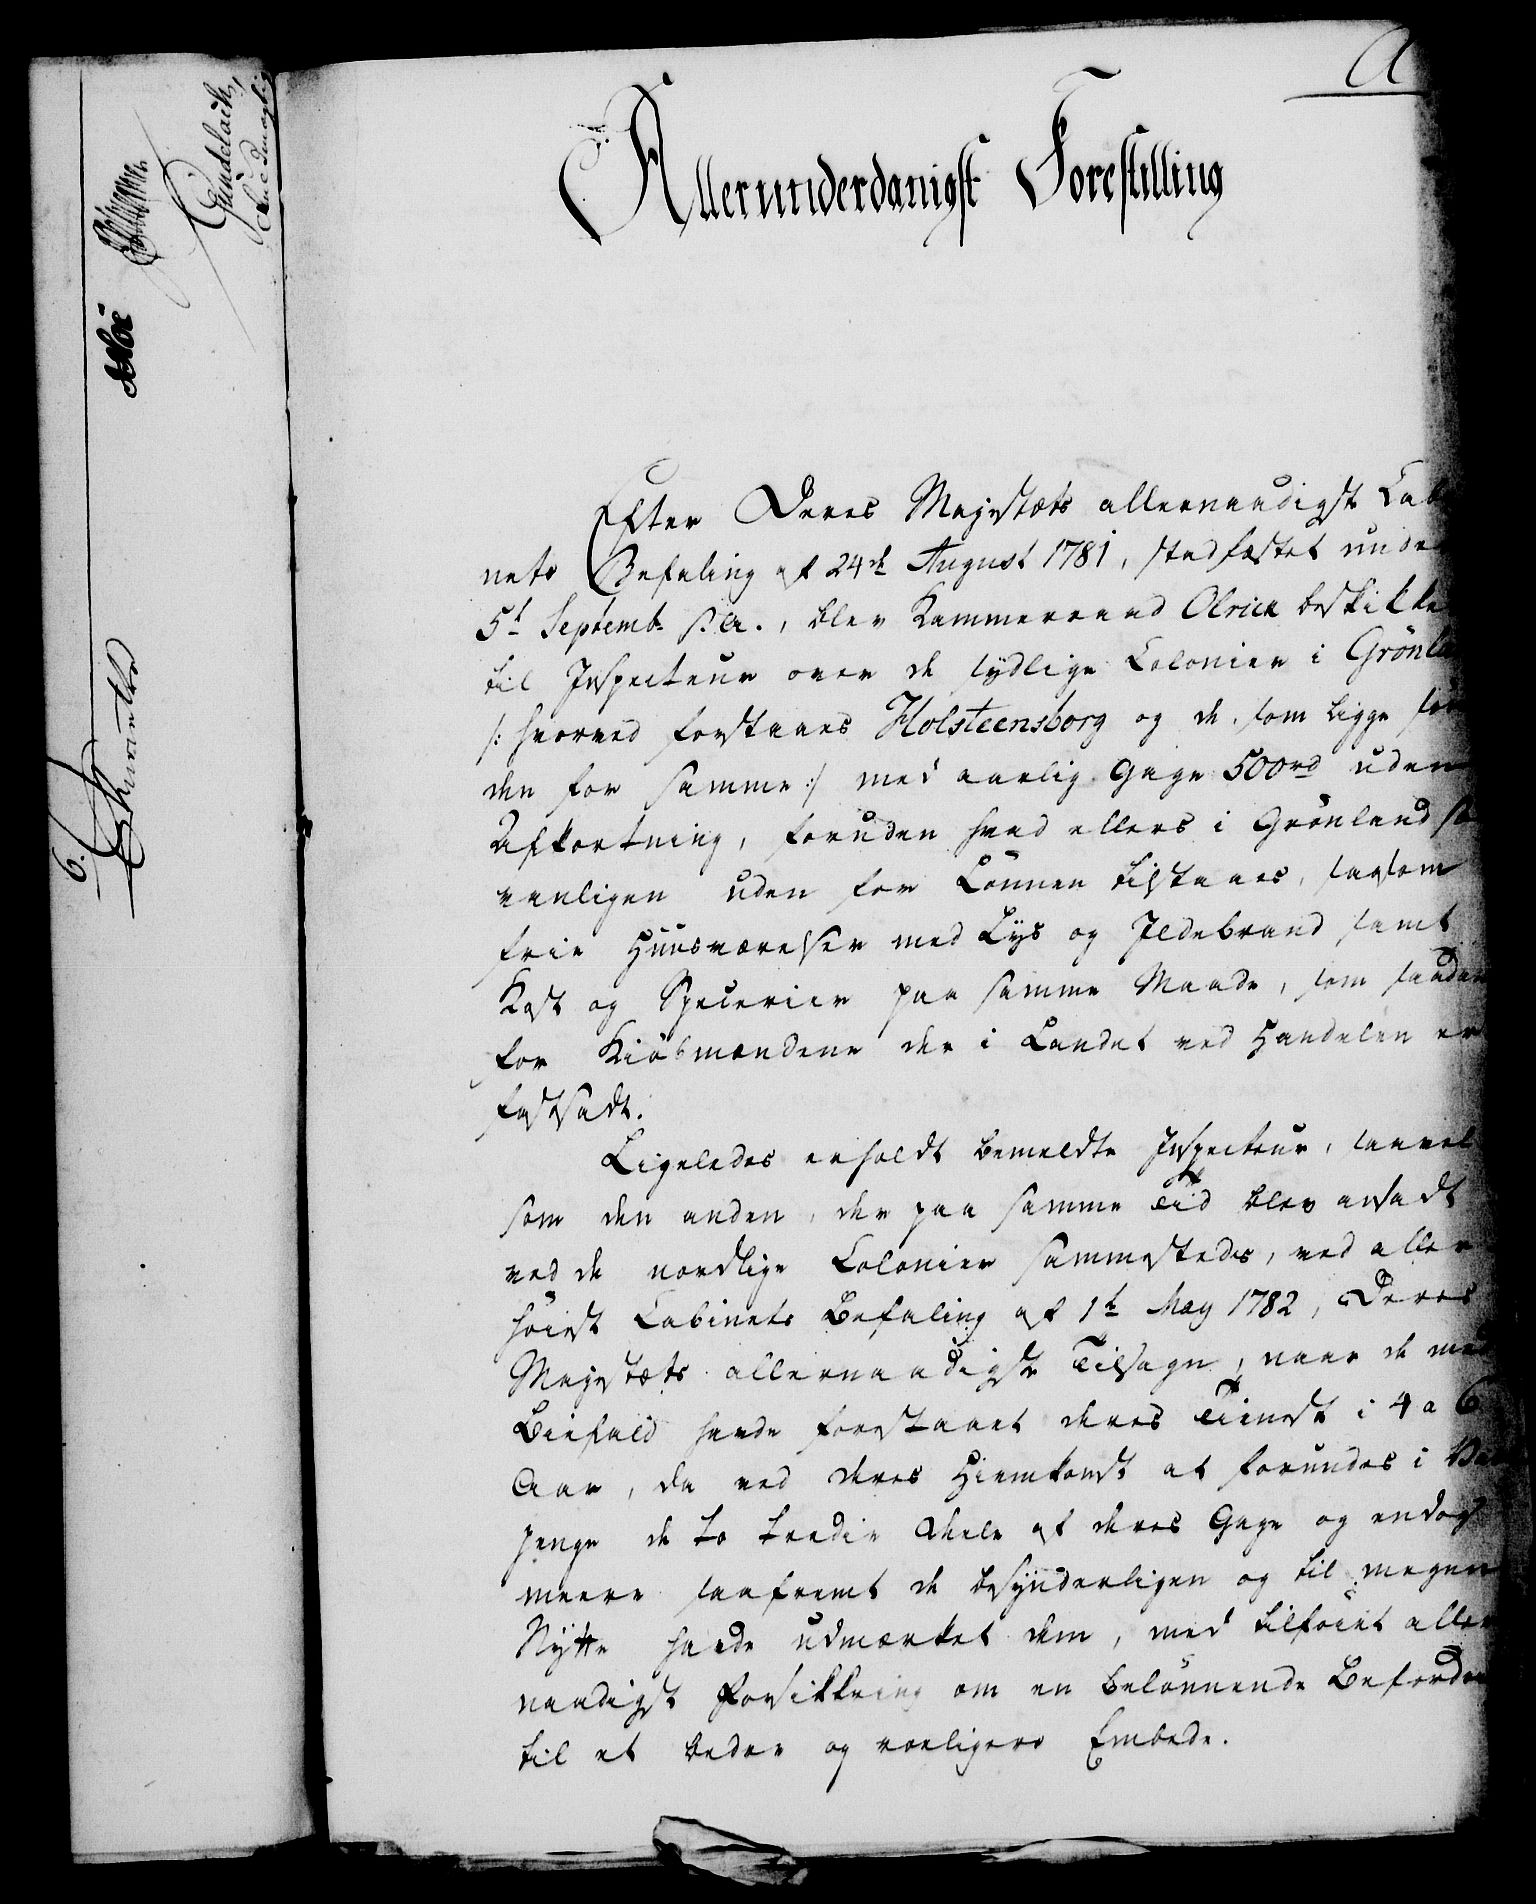 A
Allerunderdanigst Forestilling
Efter Deres Majestæts allernaadigst Cabi
nets Befaling af 24de August 1781, stadfæstet under
5t Septemb. s. A., blev Kammerraad Olrick beskikket
til Inspecteur over de sydlige Colonier i Grönla
/: hvorved forstaaes Holsteensborg og de, som ligge sön
den for samme :/ med aarlig Gage 500rd uden
Afkortning, foruden hvad ellers i Grönland sæd
vanligen uden for Lönnen tilstaaes, saasom
frie Huusværelser med Lys og Ildebrand samt
Kost og Specerier paa samme Maade, som saadan
for Kiöbmændene der i Landet ved Handelen er
fastsadt.
Ligeledes erholdt bemeldte Inspecteur, saavel
som den anden, der paa samme Tid blev ansadt
ved de nordlige Colonier sammesteds, ved aller
höiest Cabinets Befaling af 1t May 1782, Deres
Majestæts allernaadigste Tilsagn, naar de med
Biefald havde forestaaet deres Tieneste i 4 a 6
Aar, da ved deres Hiemkomst at forundes i Vart
penge de to tredie Deele af deres Gage og endog
meere saafremt de besynderligen og til megen
Nytte havde udmærket dem, med tilföiet aller
naadigst Forsikkring om en belönnende Befordr
til et bedre og roeligere Embede.
Gundelach,
6.